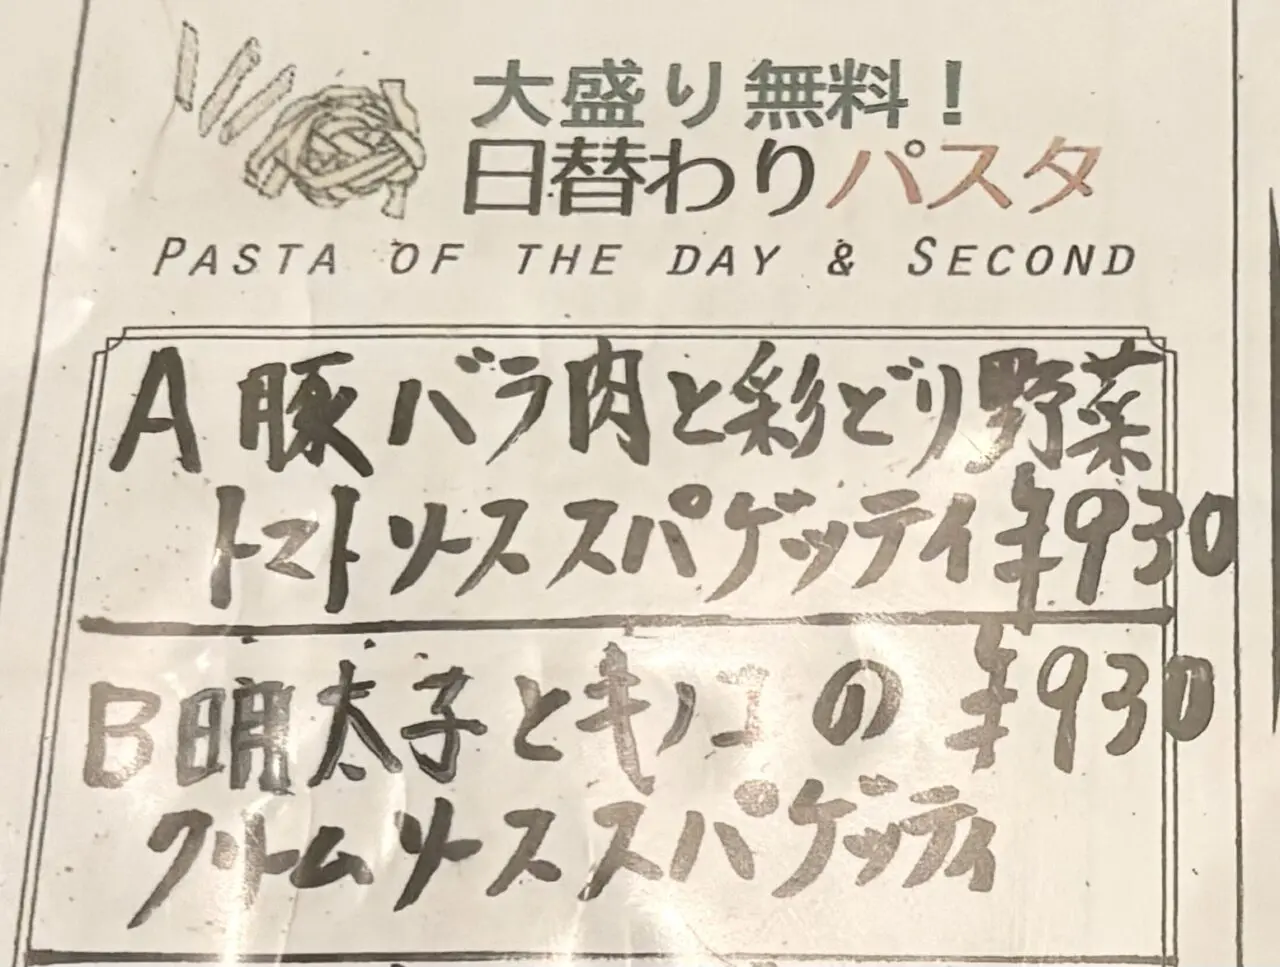 大盛り無料！
日替わりパスタ
PASTA OF THE DAY & SECOND
A 豚バラ肉と彩どり野菜
トマトソーススパゲッティ ¥930
B 明太子とキノコの ¥930
クリームソーススパゲッティ